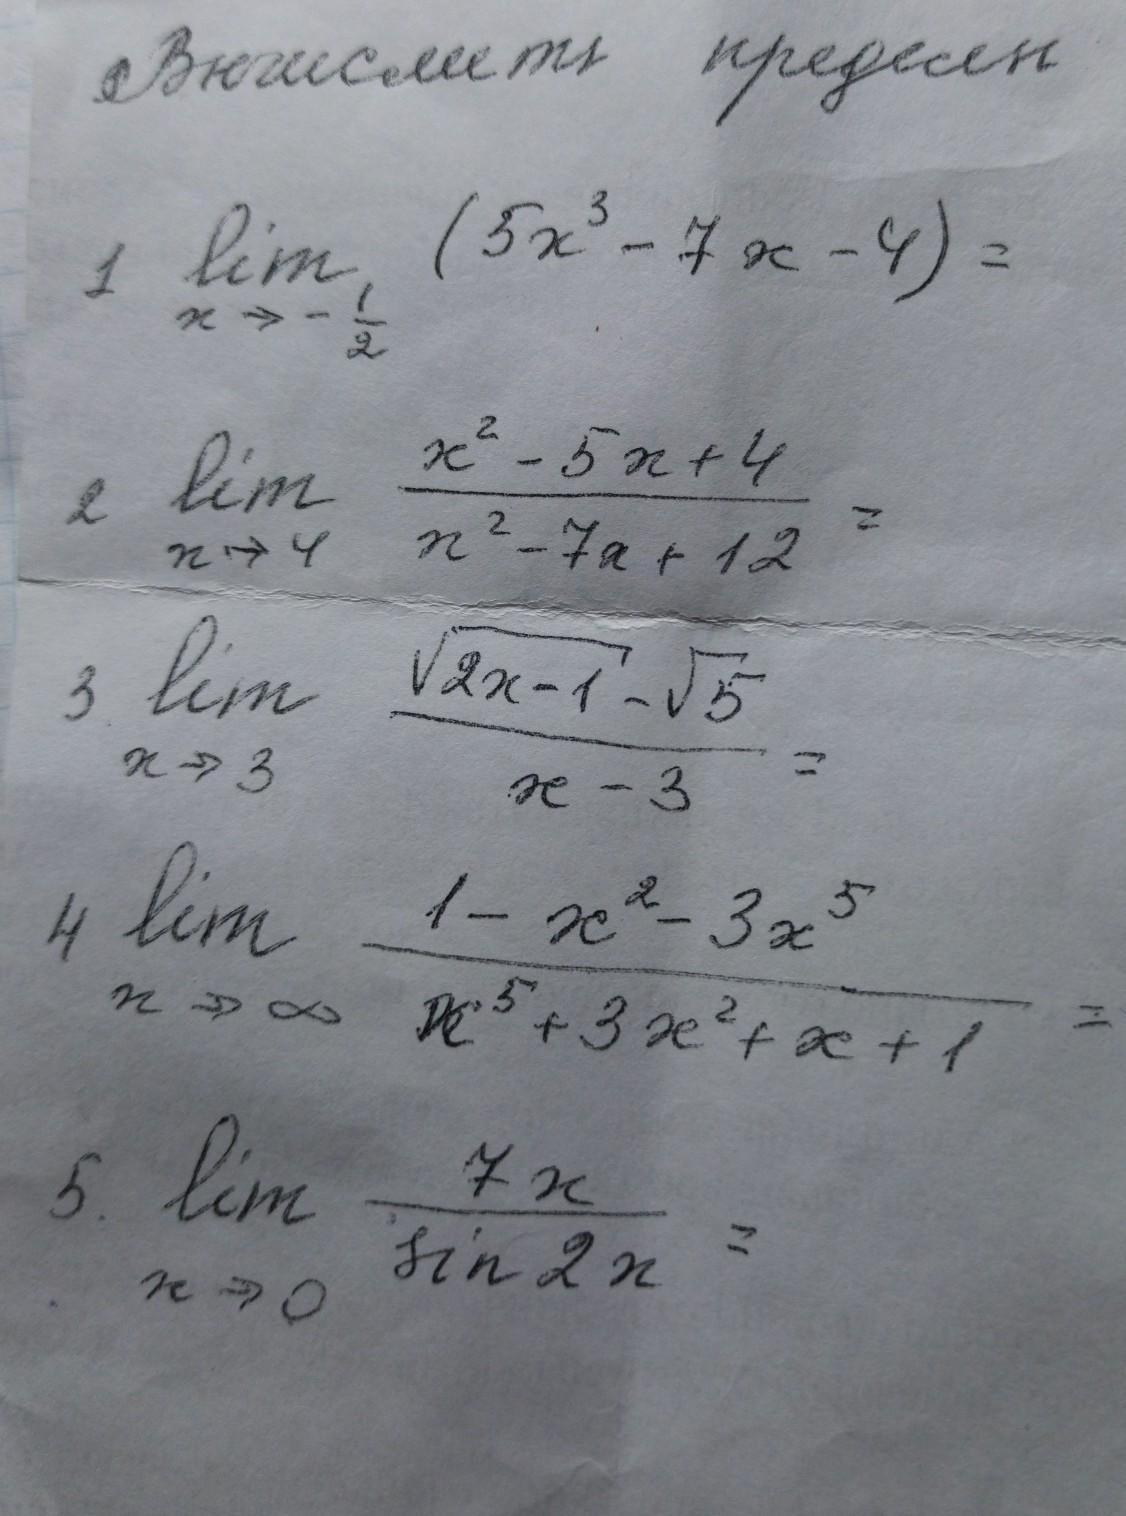 Вычислить пределы
1 lim x→-1/2 (5x³ - 7x - 4) =
2 lim x→4 (x² - 5x + 4)/(x² - 7x + 12) =
3 lim x→3 (√(2x-1) - √5)/(x - 3) =
4 lim x→∞ (1 - x² - 3x⁵)/(x⁵ + 3x² + x + 1) =
5. lim x→0 7x/sin 2x =